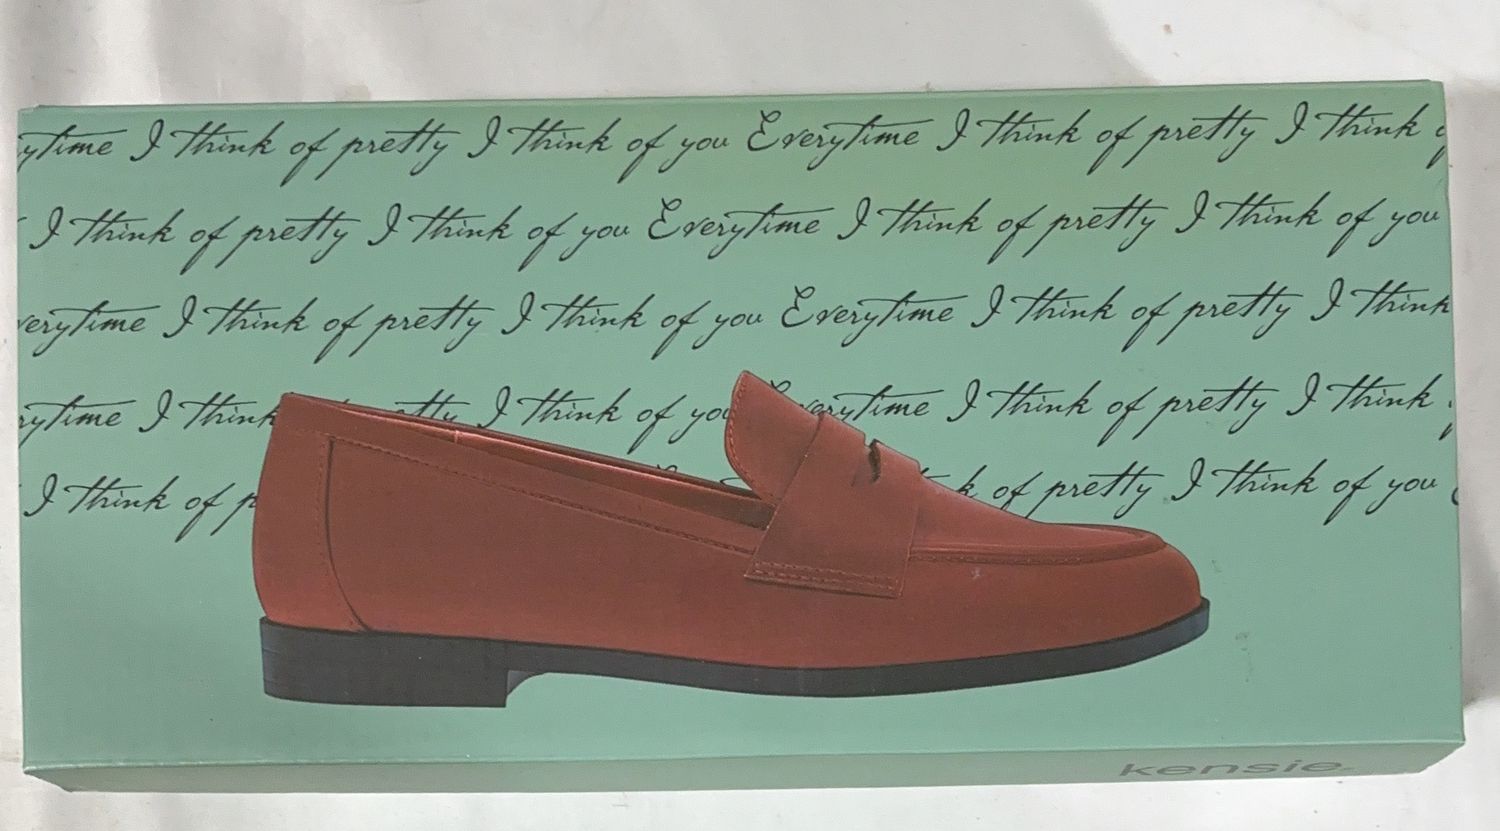 ytime I think of pretty I think of you Everytime I think of pretty I think
I think of pretty I think of you Everytime I think of pretty I think of you
verytime I think of pretty I think of you Everytime I think of pretty I think
rytime I think etty I think of you verytime I think of pretty I think
I think of p k of pretty I think of you
kensie